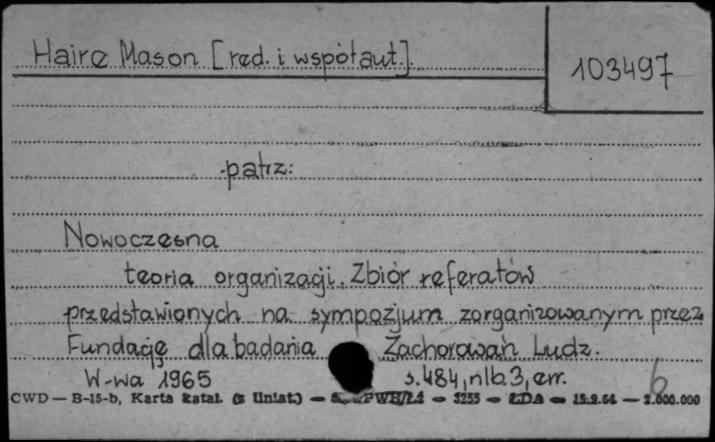 Haire Mason [red. i współaut.].
103497
patrz:
Nowoczesna
teoria organizacji. Zbiór referatów
przedstawionych na sympozjum zorganizowanym przez
Fundację dla badania Zachorowań Ludz.
W-wa 1965 s.484, nlb.3, err.
6
CWD — B-15-b, Karta katal. (z liniat.) — PWH/Łź — 3255 — ŁDA — 15.9.64 — 2.000.000